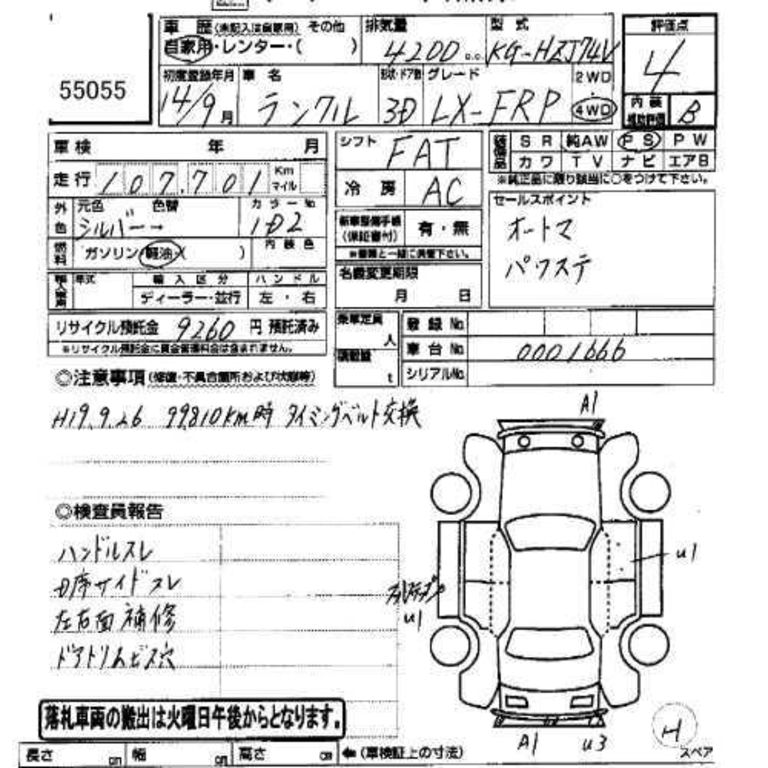 55055
車歴(未記入は自家用) その他
自家用・レンター・( )
排気量
4200 c.c.
型式
KG-HZJ74V
評価点
4
初度登録年月
14/9月
車名
ランクル
形状・ドア数
3D
グレード
LX-FRP
2WD
・
4WD
内装
補助評価
B
車検 年 月
走行 107,701 Km マイル
外色 元色 色替
シルバー→
カラーNo
1D2
燃料 ガソリン・軽油・( )
内装色
輸入車用 年式
輸入区分
ディーラー・並行
ハンドル
左・右
リサイクル預託金 9260 円 預託済み
※リサイクル預託金に資金管理料金は含まれません。
シフト FAT
冷房 AC
新車整備手帳
(保証書付) 有・無
※書類と一緒に満喫下さい。
名義変更期限
月 日
乗車定員
人
積載量
t
装備品 SR 純AW PS PW
カワ TV ナビ エアB
※純正品に限り該当に○をつけて下さい。
セールスポイント
オートマ
パワステ
登録No.
車台No. 0001666
シリアルNo.
◎注意事項(修復・不具合箇所および状態等)
H19.9.26 99810KM時 タイミングベルト交換
◎検査員報告
ハンドルスレ
D席サイドスレ
左右面補修
ドアトリムビス穴
A1
u1
u1
A1 u3
H
スペア
落札車両の搬出は火曜日午後からとなります。
長さ cm 幅 cm 高さ cm ←(車検証上の寸法)